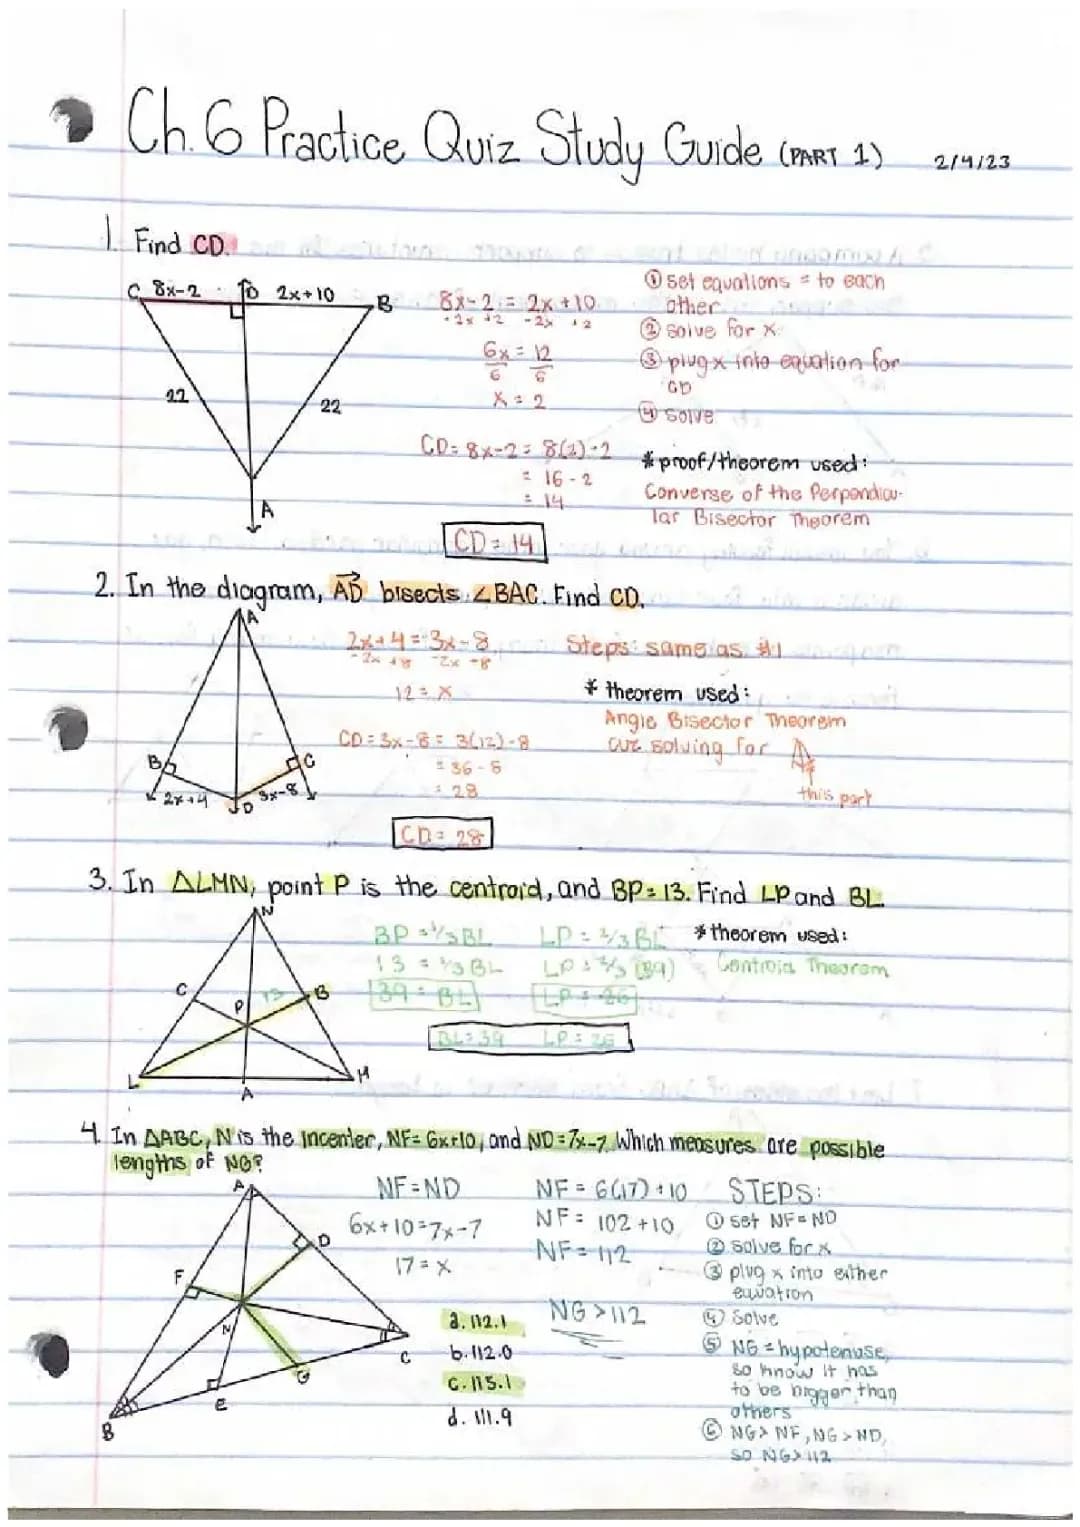 Ch. 6 Practice Quiz Study Guide (PART 1) 2/4/23
1. Find CD.
C 8x-2 D 2x+10 B
22
22
A
8x-2 = 2x+10
-2x +2 -2x +2
6x = 12
6 6
x = 2
CD = 8x-2 = 8(2)-2
= 16-2
= 14
CD = 14
① set equations = to each
other
② solve for x
③ plug x into equation for
CD
④ solve
* proof/theorem used:
Converse of the Perpendicu-
lar Bisector Theorem
2. In the diagram, AD bisects ∠BAC. Find CD.
A
B
C
2x+4
D
3x-8
2x+4 = 3x-8
-2x +8 -2x +8
12 = x
CD = 3x-8 = 3(12)-8
= 36-8
= 28
CD = 28
Steps same as #1
* theorem used:
Angle Bisector Theorem
cuz solving for
this part
3. In △LMN, point P is the centroid, and BP=13. Find LP and BL
N
C
P
13
B
L
A
M
BP = 1/3 BL
13 = 1/3 BL
39 = BL
LP = 2/3 BL
LP = 2/3 (39)
LP = 26
BL=39 LP=26
* theorem used:
Centroid Theorem
4. In △ABC, N is the incenter, NF=6x+10, and ND=7x-7. Which measures are possible
lengths of NG?
A
D
F
N
C
G
e
B
NF=ND
6x+10=7x-7
17=x
NF = 6(17)+10
NF = 102+10
NF = 112
NG > 112
a. 112.1
b. 112.0
c. 115.1
d. 111.9
STEPS:
① set NF=ND
② solve for x
③ plug x into either
equation
④ solve
⑤ NG = hypotenuse,
so know it has
to be bigger than
others
⑥ NG > NF, NG > ND,
so NG > 112